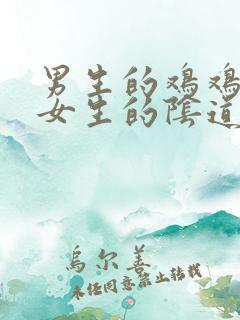 男生的鸡鸡
女生的陰道
烏尔善
未经同意禁止转载